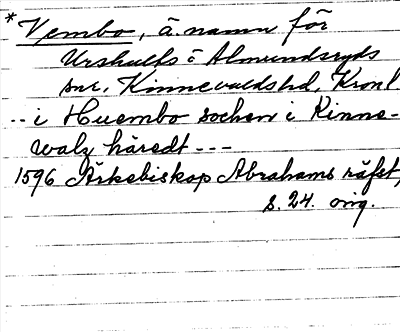 * Vembo, ä. namn för
Urshults o Almundsryds
snr, Kinnevaldshd, Kronl
-- i Huembo sochen i Kinne-
walz häredt ---
1596 Ärkebiskop Abrahams räfst,
s. 24. orig.